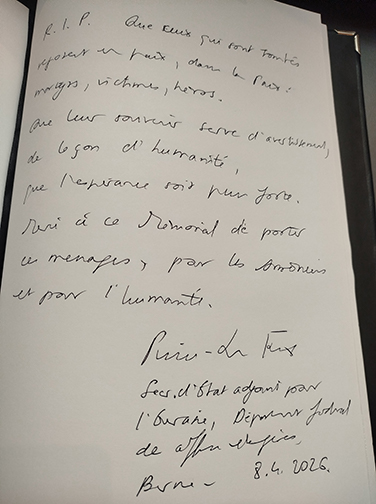 R.I.P. Que ceux qui sont tombés
reposent en paix, dans la Paix :
martyrs, victimes, héros.
Que leur souvenir serve d'avertissement,
de leçon d'humanité,
que l'espérance soit plus forte.
Merci à ce Mémorial de porter
ces messages, pour les Arméniens
et pour l'humanité.
Secr. d'État adjoint pour
l'Eurasie, Département fédéral
des affaires étrangères,
Berne - 8.4.2026.